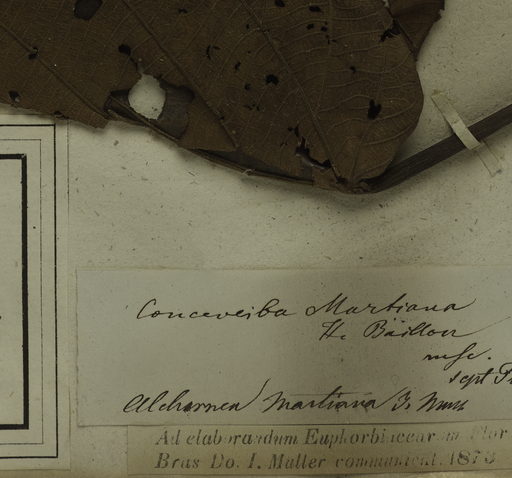 Conceveiba Martiana
H. Baillon
msc.
sept
Alchornea Martiana J. Müll
Ad elaborandum Euphorbiacearum Flor
Bras Do. I. Muller communicat. 1873